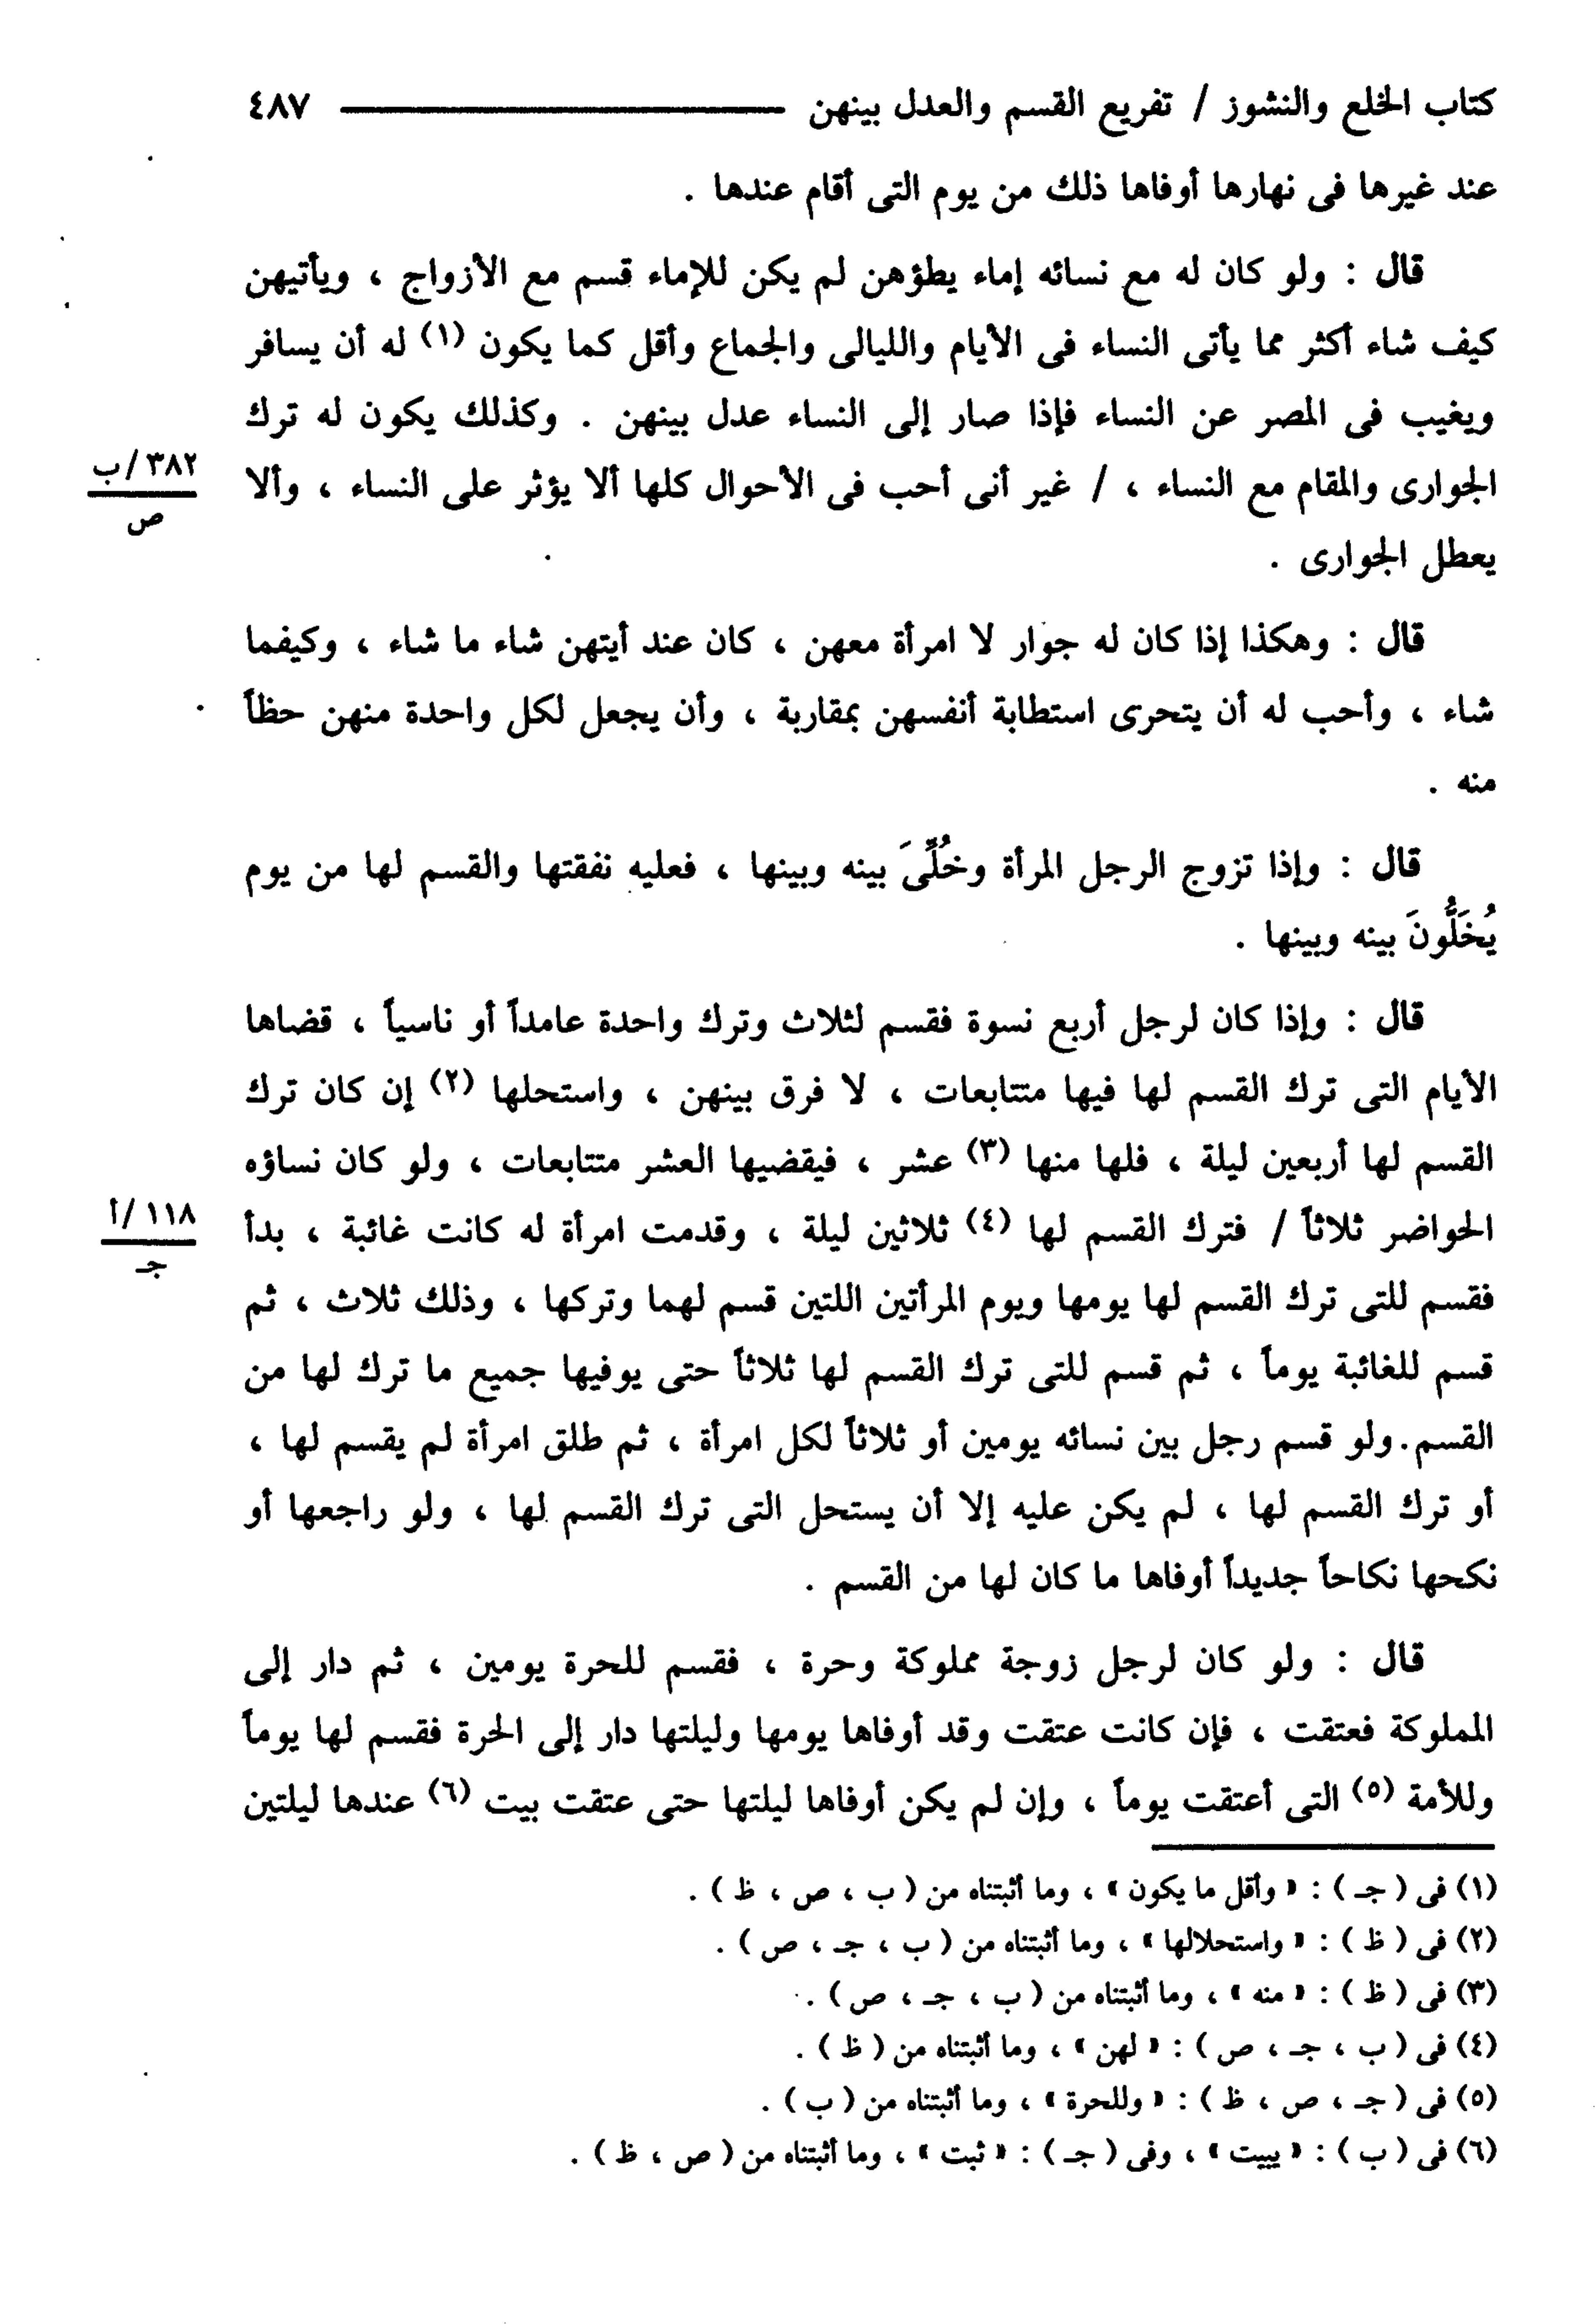 كتاب الخلع والنشوز / تفريع القسم والعدل بينهن ٤٨٧
عند غيرها فى نهارها أوفاها ذلك من يوم التى أقام عندها .
قال : ولو كان له مع نسائه إماء يطؤهن لم يكن للإماء قسم مع الأزواج ، ويأتيهن
كيف شاء أكثر مما يأتى النساء فى الأيام والليالى والجماع وأقل كما يكون (١) له أن يسافر
ويغيب فى المصر عن النساء فإذا صار إلى النساء عدل بينهن . وكذلك يكون له ترك
الجوارى والمقام مع النساء ، / غير أنى أحب فى الأحوال كلها ألا يؤثر على النساء ، وألا
٣٨٢/ب
ص
يعطل الجوارى .
قال : وهكذا إذا كان له جوار لا امرأة معهن ، كان عند أيتهن شاء ما شاء ، وكيفما
شاء ، وأحب له أن يتحرى استطابة أنفسهن بمقاربة ، وأن يجعل لكل واحدة منهن حظاً
منه .
قال : وإذا تزوج الرجل المرأة وخُلِّىَ بينه وبينها ، فعليه نفقتها والقسم لها من يوم
يُخَلُّونَ بينه وبينها .
قال : وإذا كان لرجل أربع نسوة فقسم لثلاث وترك واحدة عامداً أو ناسياً ، قضاها
الأيام التى ترك القسم لها فيها متتابعات ، لا فرق بينهن ، واستحلها (٢) إن كان ترك
القسم لها أربعين ليلة ، فلها منها (٣) عشر ، فيقضيها العشر متتابعات ، ولو كان نساؤه
الحواضر ثلاثاً / فترك القسم لها (٤) ثلاثين ليلة ، وقدمت امرأة له كانت غائبة ، بدأ
١١٨/أ
جـ
فقسم للتى ترك القسم لها يومها ويوم المرأتين اللتين قسم لهما وتركها ، وذلك ثلاث ، ثم
قسم للغائبة يوماً ، ثم قسم للتى ترك القسم لها ثلاثاً حتى يوفيها جميع ما ترك لها من
القسم. ولو قسم رجل بين نسائه يومين أو ثلاثاً لكل امرأة ، ثم طلق امرأة لم يقسم لها ،
أو ترك القسم لها ، لم يكن عليه إلا أن يستحل التى ترك القسم لها ، ولو راجعها أو
نكحها نكاحاً جديداً أوفاها ما كان لها من القسم .
قال : ولو كان لرجل زوجة مملوكة وحرة ، فقسم للحرة يومين ، ثم دار إلى
المملوكة فعتقت ، فإن كانت عتقت وقد أوفاها يومها وليلتها دار إلى الحرة فقسم لها يوماً
وللأمة (٥) التى أعتقت يوماً ، وإن لم يكن أوفاها ليلتها حتى عتقت بيت (٦) عندها ليلتين
(١) فى ( جـ ) : « وأقل ما يكون » ، وما أثبتناه من ( ب ، ص ، ظ ) .
(٢) فى ( ظ ) : « واستحلالها » ، وما أثبتناه من ( ب ، جـ ، ص ) .
(٣) فى ( ظ ) : « منه » ، وما أثبتناه من ( ب ، جـ ، ص ) .
(٤) فى ( ب ، جـ ، ص ) : « لهن » ، وما أثبتناه من ( ظ ) .
(٥) فى ( جـ ، ص ، ظ ) : « وللحرة » ، وما أثبتناه من ( ب ) .
(٦) فى ( ب ) : « يبيت » ، وفى ( جـ ) : « ثبت » ، وما أثبتناه من ( ص ، ظ ) .